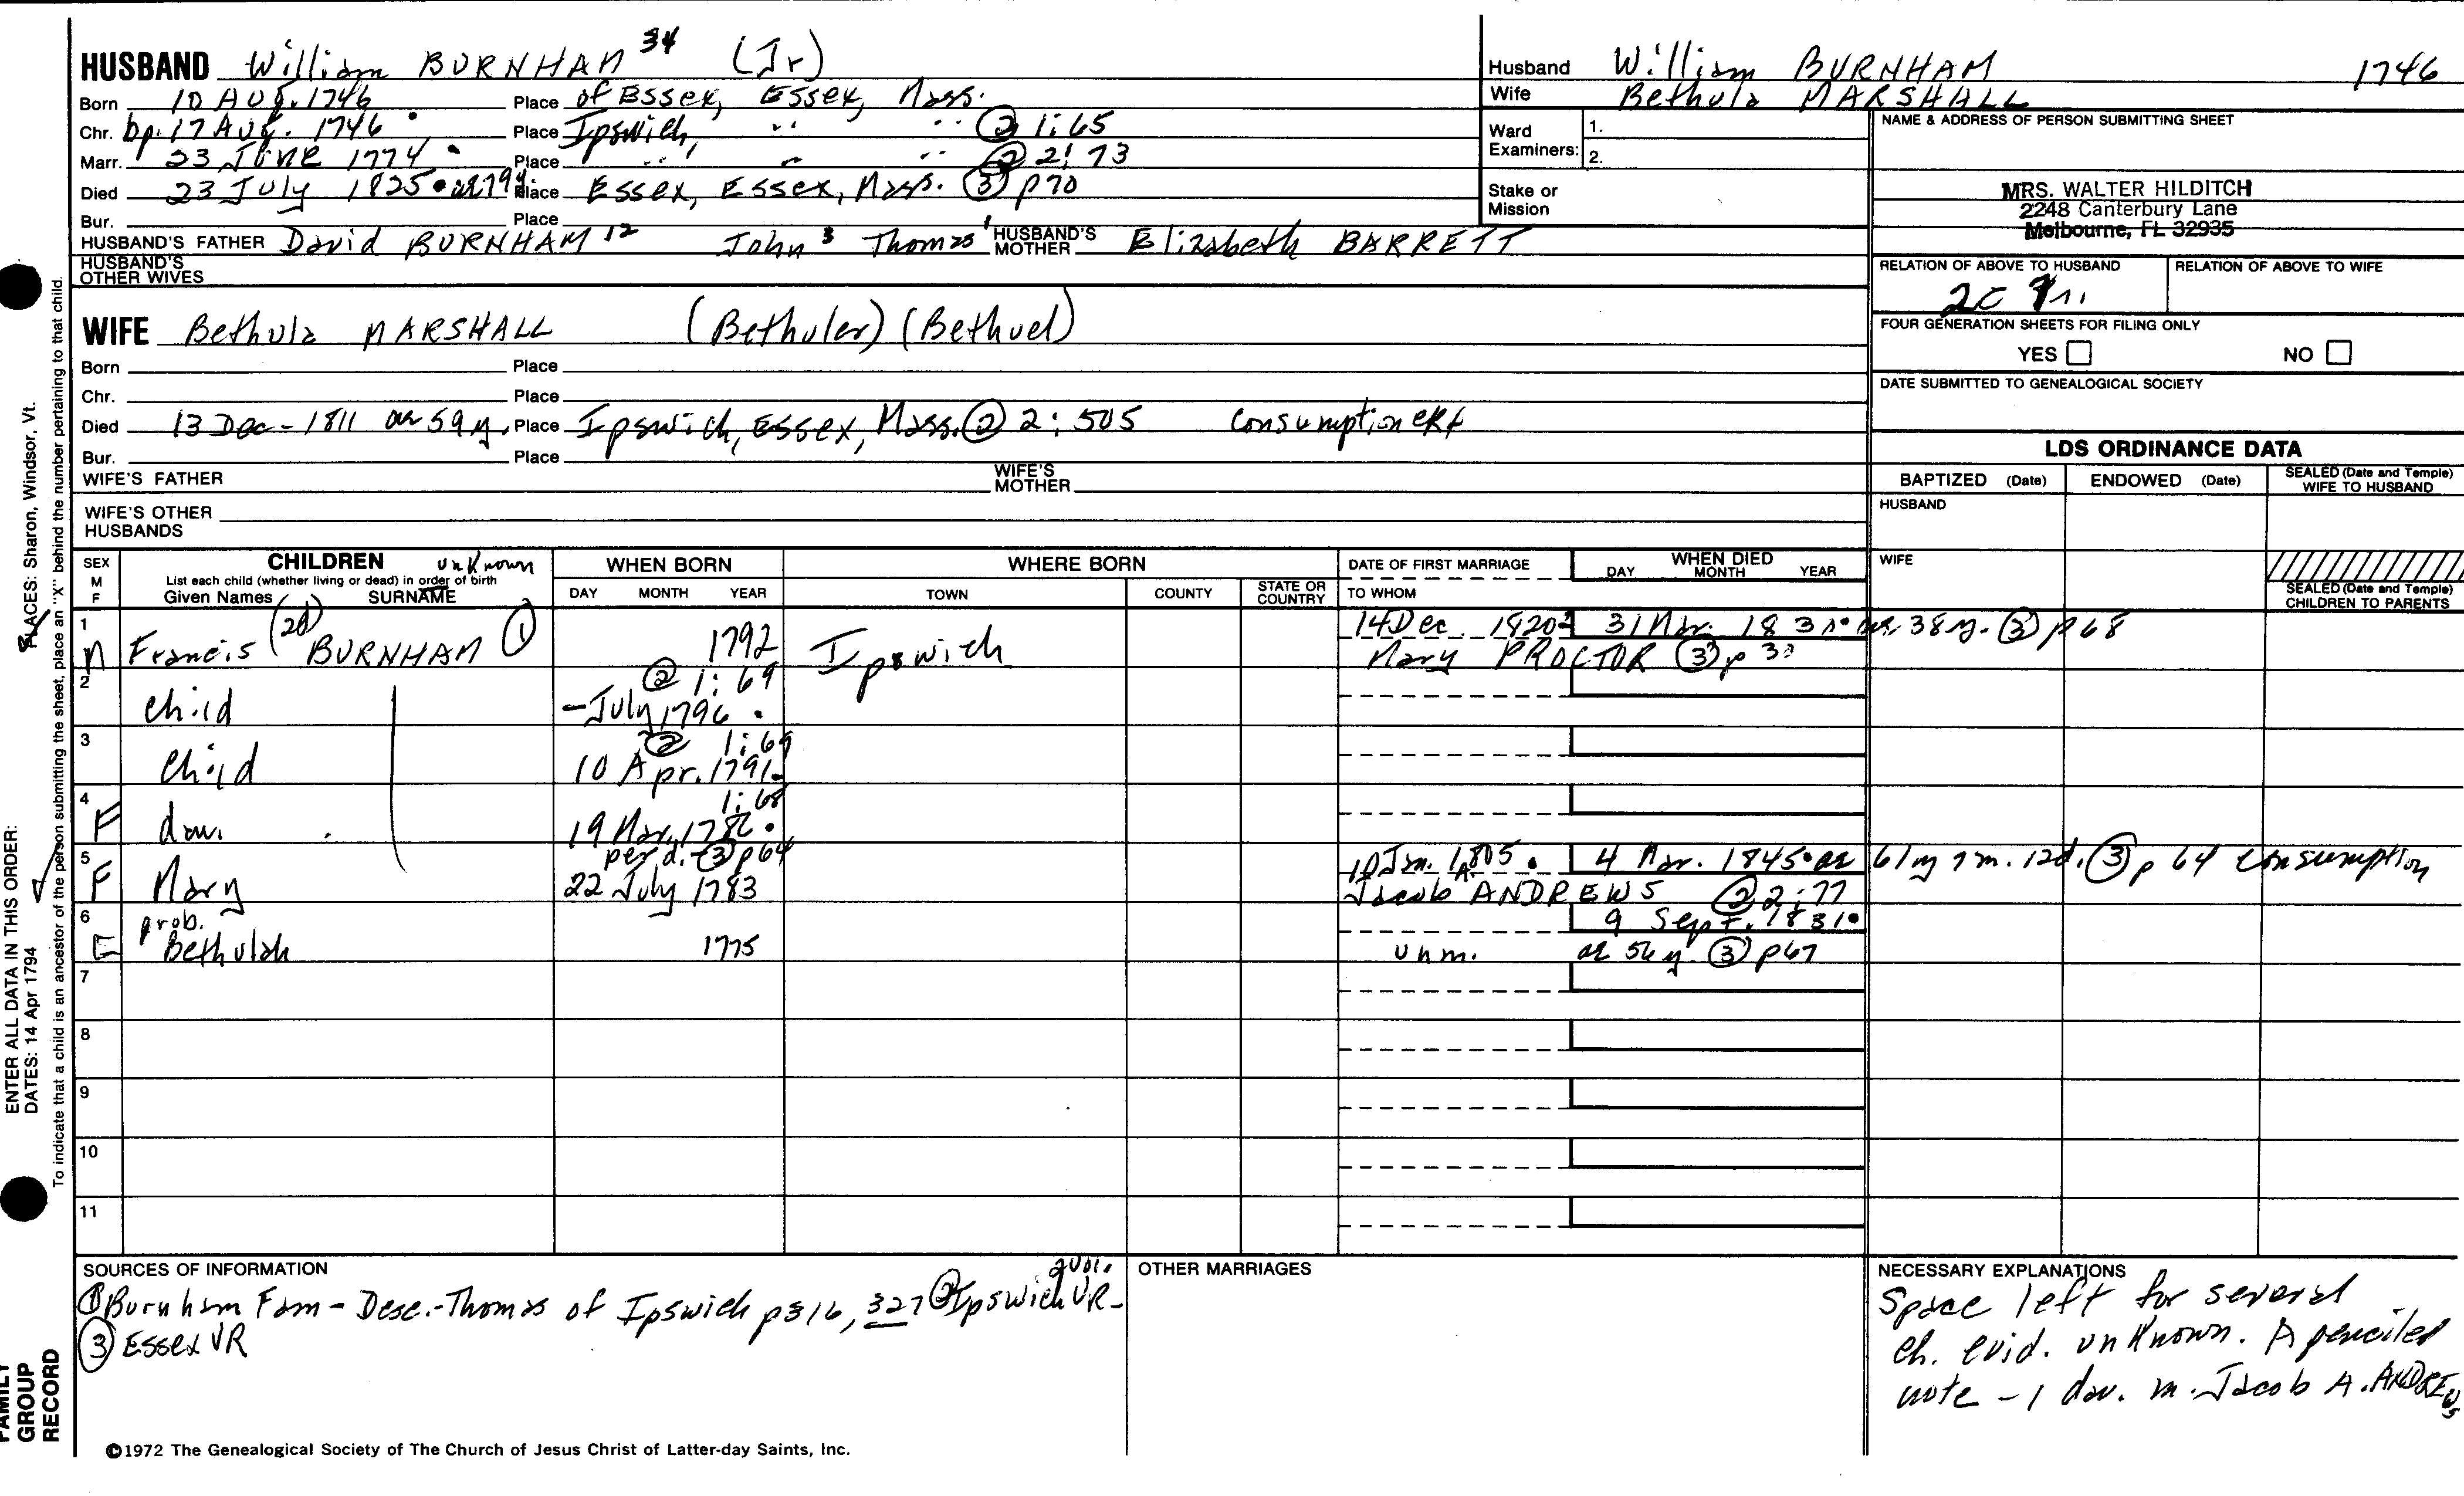 HUSBAND William BURNHAM 34 (Jr)
Born 10 Aug. 1746 Place of Essex, Essex, Mass.
Chr. bp. 17 Aug. 1746 Place Ipswich, " " ② 1:65
Marr. 23 June 1774 Place " " " ② 2:73
Died 23 July 1825 ae 79y. Place Essex, Essex, Mass. ③ p70
Bur. Place
HUSBAND'S FATHER David BURNHAM 12 John 3 Thomas 1 HUSBAND'S MOTHER Elizabeth BARRETT
HUSBAND'S OTHER WIVES
Husband William BURNHAM 1746
Wife Bethula MARSHALL
Ward Examiners: 1.
2.
Stake or Mission
NAME & ADDRESS OF PERSON SUBMITTING SHEET
MRS. WALTER HILDITCH
2248 Canterbury Lane
Melbourne, FL 32935
RELATION OF ABOVE TO HUSBAND RELATION OF ABOVE TO WIFE
2C
FOUR GENERATION SHEETS FOR FILING ONLY
YES NO
DATE SUBMITTED TO GENEALOGICAL SOCIETY
WIFE Bethula MARSHALL (Bethuler) (Bethuel)
Born Place
Chr. Place
Died 13 Dec - 1811 ae 59 y. Place Ipswich, Essex, Mass. ② 2:505 consumption CR4
Bur. Place
WIFE'S FATHER WIFE'S MOTHER
WIFE'S OTHER HUSBANDS
LDS ORDINANCE DATA
BAPTIZED (Date) ENDOWED (Date) SEALED (Date and Temple) WIFE TO HUSBAND
HUSBAND
WIFE
SEALED (Date and Temple) CHILDREN TO PARENTS
SEX M F
CHILDREN unknown
List each child (whether living or dead) in order of birth
Given Names SURNAME
WHEN BORN
DAY MONTH YEAR
WHERE BORN
TOWN COUNTY STATE OR COUNTRY
DATE OF FIRST MARRIAGE
TO WHOM
WHEN DIED
DAY MONTH YEAR
1 14 Dec. 1820 31 Mar. 1831 ae. 38 y. ③ p68
M Francis (2d) BURNHAM ① 1792 Ipswich Mary PROCTOR ③ p
2 ② 1:69
child – July 1796
3 ② 1:69
child 10 Apr. 1791
4 1:68
F dau. 19 Mar. 1786
5 per d. – ③ p64 10 Jan. 1805 4 Mar. 1845 ae 61 y 7 m. 12d. ③ p 64 consumption
F Mary 22 July 1783 Jacob A. ANDREWS ② 2:77
6 prob. 9 Sept. 1831
F Bethulah 1775 unm. ae 56 y. ③ p67
7
8
9
10
11
SOURCES OF INFORMATION
① Burnham Fam – Desc. – Thomas of Ipswich p316, 327 ② Ipswich VR – 2 vol.
③ Essex VR
OTHER MARRIAGES
NECESSARY EXPLANATIONS
Space left for several
ch. evid. unknown. A penciled
note – 1 dau. m. Jacob A. ANDREWS
©1972 The Genealogical Society of The Church of Jesus Christ of Latter-day Saints, Inc.
FAMILY GROUP RECORD
ENTER ALL DATA IN THIS ORDER:
DATES: 14 Apr 1794
PLACES: Sharon, Windsor, Vt.
To indicate that a child is an ancestor of the person submitting the sheet, place an "X" behind the number pertaining to that child.